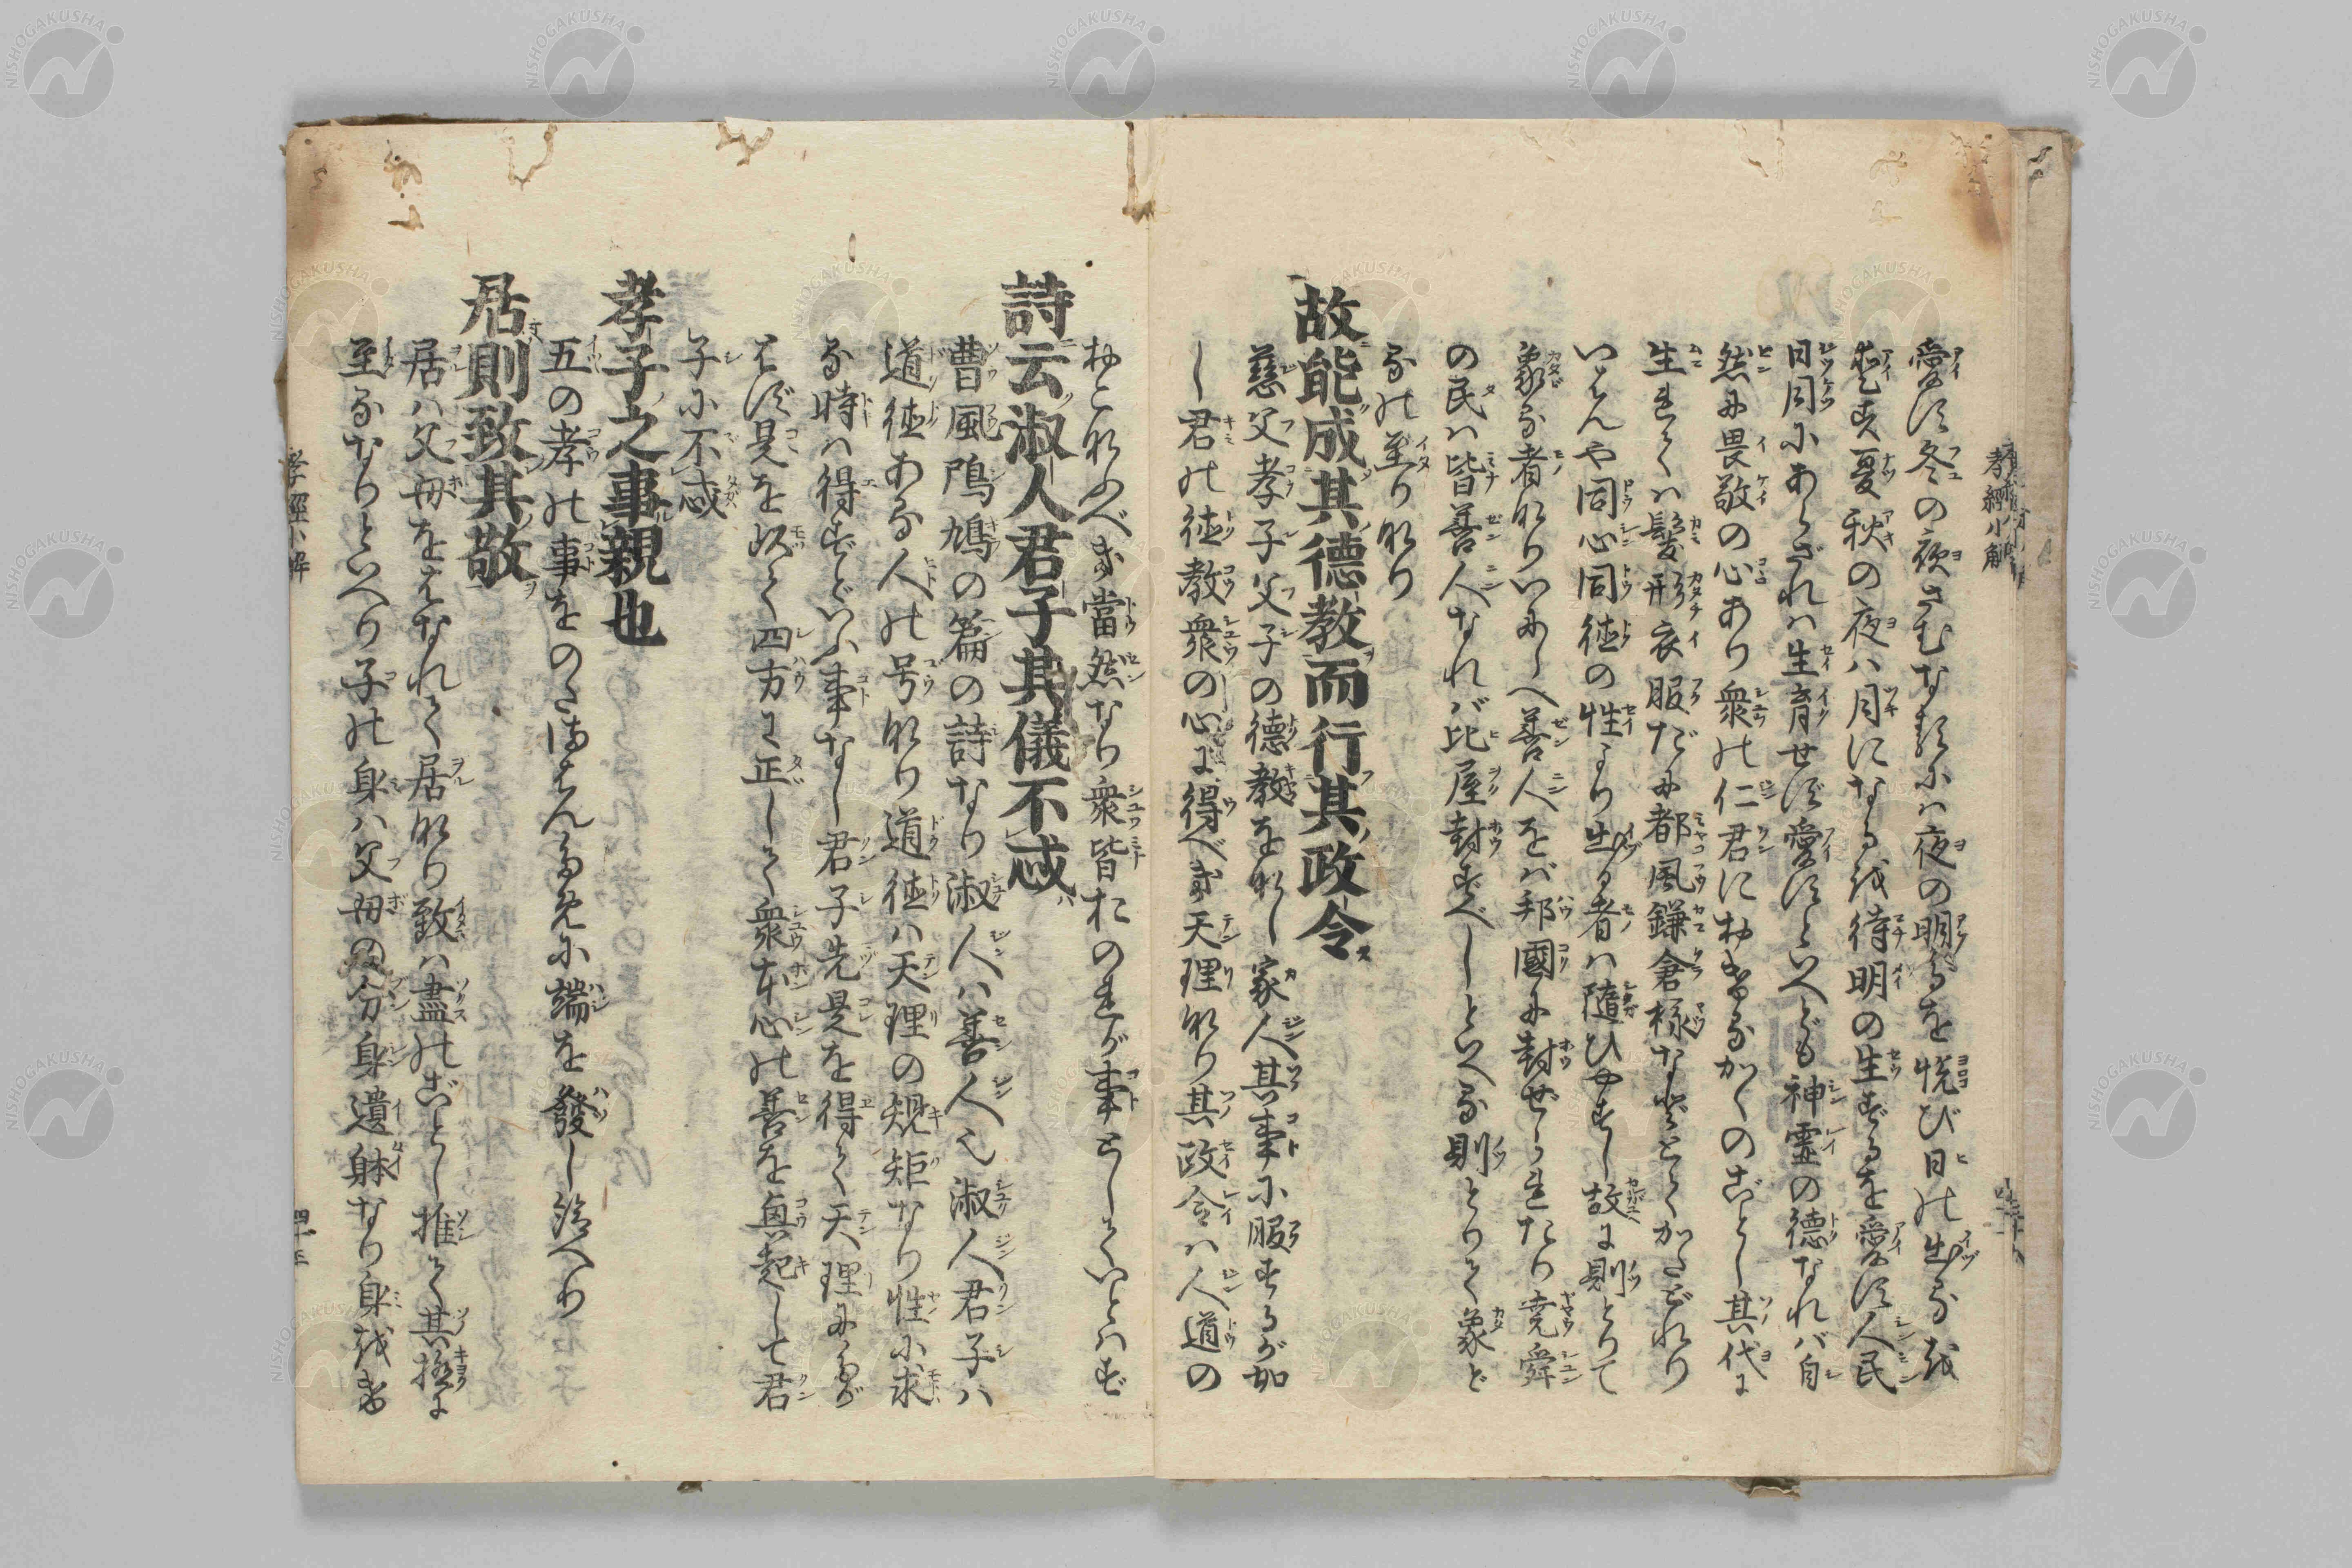 愛す冬の夜さむなるには夜の明るを悦び日の出るを
愛す夏秋の夜は月になるを待明の生ずるを愛す人民
日月にあらざれは生育せず愛すといへども神霊の徳なれバ自
然に畏敬の心あり衆の仁君におけるがくのごとし其代に
生れてハ髪形衣服だに都風鎌倉様などとてかたどれり
いはんや同心同徳の性より出る者ハ随ひやすし故に則とりて
象る者なりいにしへ善人をバ邦國に封せられたり堯舜
の民ハ皆善人なれバ比屋封ずべしといへる則とりて象ど
るの至りなり
故能成其德教而行其政令
慈父孝子父子の德教をなし家人其事に服するが如
し君の徳教衆の心に得べき天理なり其政令ハ人道の
おこなふべき當然なり衆皆おのれが事としていとはず
詩云淑人君子其儀不忒
曹風鳲鳩の篇の詩なり淑人ハ善人也淑人君子ハ
道徳ある人の号なり道徳ハ天理の規矩なり性に求
る時ハ得ずといふ事なし君子先是を得て天理にたが
はず是を以て四方に正しくて衆本心の善を興起して君
子に不忒
孝子之事親也
五の孝の事をのたまはんために端を發し給へり
居則致其敬
居ハ父母をはなれて居なり致ハ盡のごとし推て其極に
至るなりといへり子の身ハ父母の分身遺躰なり身をき
孝經小解